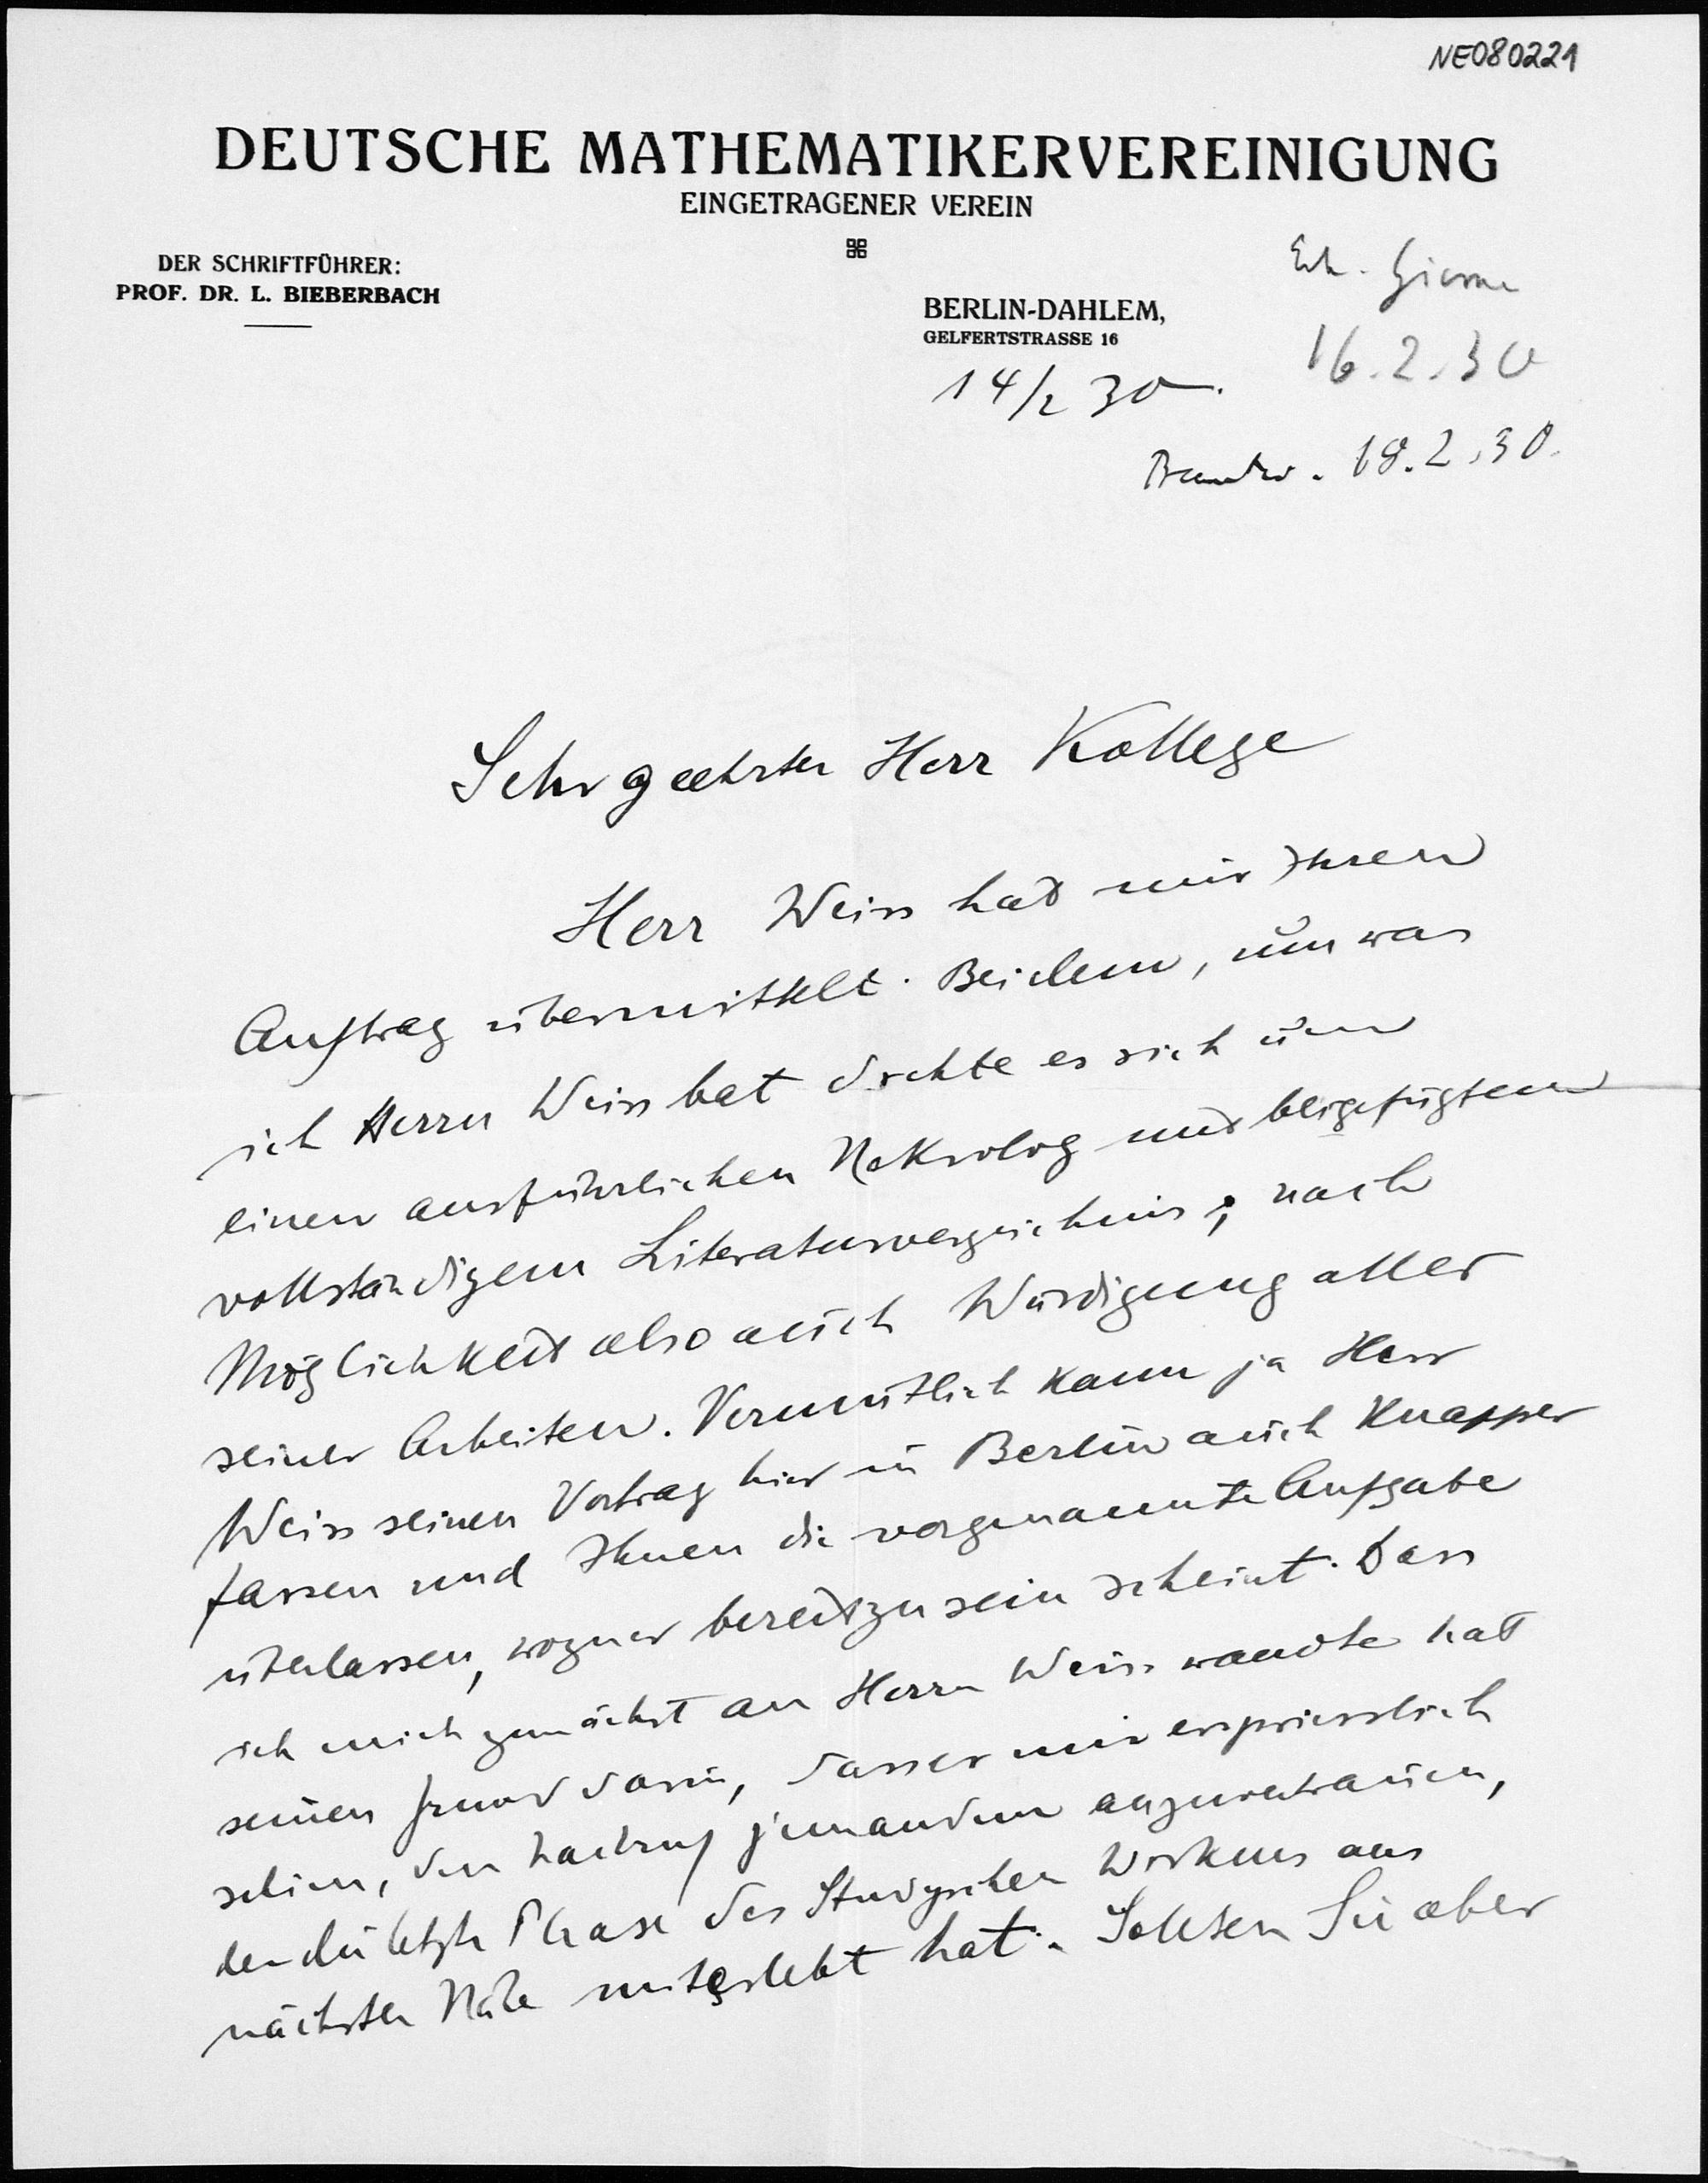 NE080221
DEUTSCHE MATHEMATIKERVEREINIGUNG
EINGETRAGENER VEREIN
DER SCHRIFTFÜHRER:
PROF. DR. L. BIEBERBACH
BERLIN-DAHLEM,
GELFERTSTRASSE 16
Erh.
16.2.30
14/2 30.
18.2.30.
Sehr geehrter Herr Kollege
Herr Weiss hat mir Ihren
Auftrag übermittelt. Bei dem, um was
ich Herrn Weiss bat drehte es sich um
einen ausführlichen Nekrolog mit beigefügtem
vollständigem Literaturverzeichnis; nach
Möglichkeit also auch Würdigung aller
seiner Arbeiten. Vermutlich kann ja Herr
Weiss seinen Vortrag hier in Berlin auch knapper
fassen und Ihnen die vorgenannte Aufgabe
überlassen, wozu er bereit zu sein scheint. Dass
ich mich zunächst an Herrn Weiss wandte hat
seinen Grund darin, dass es mir erspriesslich
schien, den Nachruf jemandem anzuvertrauen,
der die letzte Phase des Studyschen Wirkens aus
nächster Nähe miterlebt hat. Sollten Sie aber